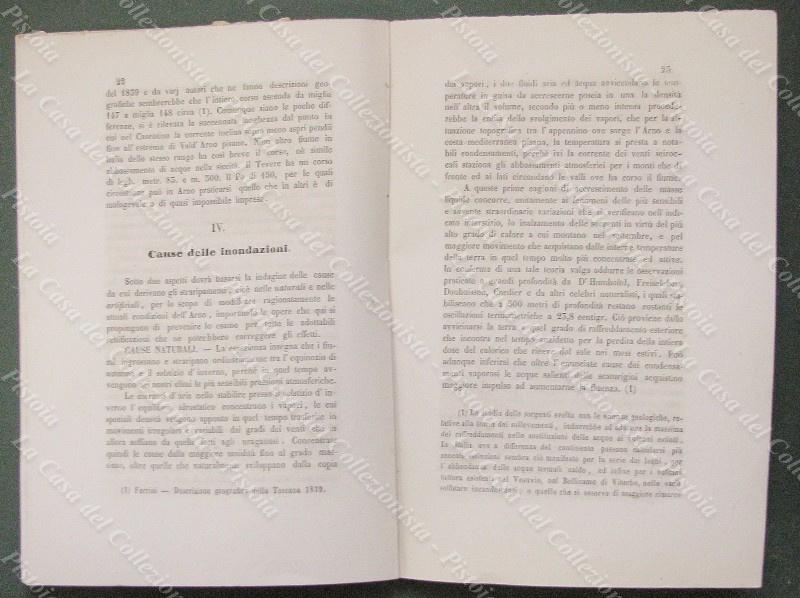 22
del 1839 e da varj autori che ne fanno descrizioni geo-
grafiche sembrerebbe che l'intiero corso ascenda da miglia
147 a miglia 148 circa (1). Comunque siano le poche dif-
ferenze, si è rilevata la succennata lunghezza dal punto in
cui nel Casentino la corrente inclina sopra meno aspri pendii
fino all'estremo di Vald'Arno pisano. Non altro fiume in
Italia dello stesso rango ha così breve il corso, nè simile
abbassamento di acque nella siccità. Il Tevere ha un corso
di legh. metr. 85. e m. 500. Il Po di 450, per le quali
circostanze può in Arno praticarsi quello che in altri è di
malagevole o di quasi impossibile impresa.
IV.
Cause delle inondazioni.
Sotto due aspetti dovrà basarsi la indagine delle cause
da cui derivano gli straripamenti, cioè nelle naturali e nelle
artificiali, per lo scopo di modificare ragionatamente le
attuali condizioni dell'Arno, importando le opere che qui si
propongono di prevenire lo esame per tutte le adottabili
rettificazioni che ne potrebbero correggere gli effetti.
CAUSE NATURALI. — La esperienza insegna che i fiu-
mi ingrossano e straripano ordinariamente tra l'equinozio di
autunno e il solstizio d'inverno, perchè in quel tempo av-
vengono nei nostri climi le più sensibili pressioni atmosferiche.
Le correnti d'aria nello stabilire presso il solstizio d'in-
verno l'equilibrio idrostatico concentrano i vapori, le cui
speciali densità vengono appunto in quel tempo trasferite in
movimenti irregolari e variabili dei gradi dei venti che in
allora soffiano da quelle forti agli uraganosi. Concentrate
quindi le cause dalla maggiore umidità fino al grado mas-
simo, oltre quelle che naturalmente sviluppano dalla copia
(1) Ferrini — Descrizione geografica della Toscana 1839.
23
dei vapori, i due fluidi aria ed acqua avvicendano le tem-
perature in guisa da accrescerne poscia in una la densità
nell'altra il volume, secondo più o meno intensa procede-
rebbe la entità dello svolgimento dei vapori, che per la si-
tuazione topografica tra l'appennino ove sorge l'Arno e la
costa mediterranea pisana, la temperatura si presta a nota-
bili condensamenti, perchè ivi la corrente dei venti sciroc-
cali staziona gli abbassamenti atmosferici per i monti che di
fronte ed ai lati circondano le valli ove ha corso il fiume.
A queste prime cagioni di accrescimento delle masse
liquide concorre, unitamente ai fenomeni delle più sensibili
e sovente straordinarie variazioni che si verificano nell'indi-
cato interstizio, lo inalzamento delle sorgenti in virtù del più
alto grado di calore a cui montano nel settembre, e pel
maggiore movimento che acquistano dalle interne temperature
della terra in quel tempo molto più concentrate ed attive.
In conferma di una tale teoria valga addurre le osservazioni
praticate a grandi profondità da D'Humboldt, Freiesleben,
Daubuisson, Cordier e da altri celebri naturalisti, i quali sta-
biliscono che a 500 metri di profondità restano costanti le
oscillazioni termometriche a 23,8 centigr. Ciò proviene dallo
avvicinarsi la terra a quel grado di raffreddamento esteriore
che incontra nel tempo anzidetto per la perdita della intiera
dose del calorico che riceve dal sole nei mesi estivi. Può
adunque inferirsi che oltre l'enunciate cause dai condensa-
menti vaporosi le acque salienti delle scaturigini acquistino
maggiore impulso ad aumentarne la fluenza. (1)
(1) Lo studio delle sorgenti svelta con le scienze geologiche, re-
lative alla teoria dei sollevamenti, indurrebbe ad adottare la massima
dei raffreddamenti nella sostituzione delle acque ai vulcani estinti.
In Italia ove a differenza del continente possono calcolarsi più
recenti estinzioni sembra ciò manifesto per la serie dei laghi, per
l'abbondanza delle acque termali calde, ed infine per i vulcani
tuttora esistenti nel Vesuvio, nel Bullicame di Viterbo, nelle varie
solfatare incandescenti, e quello che si osserva di maggiore rimarco